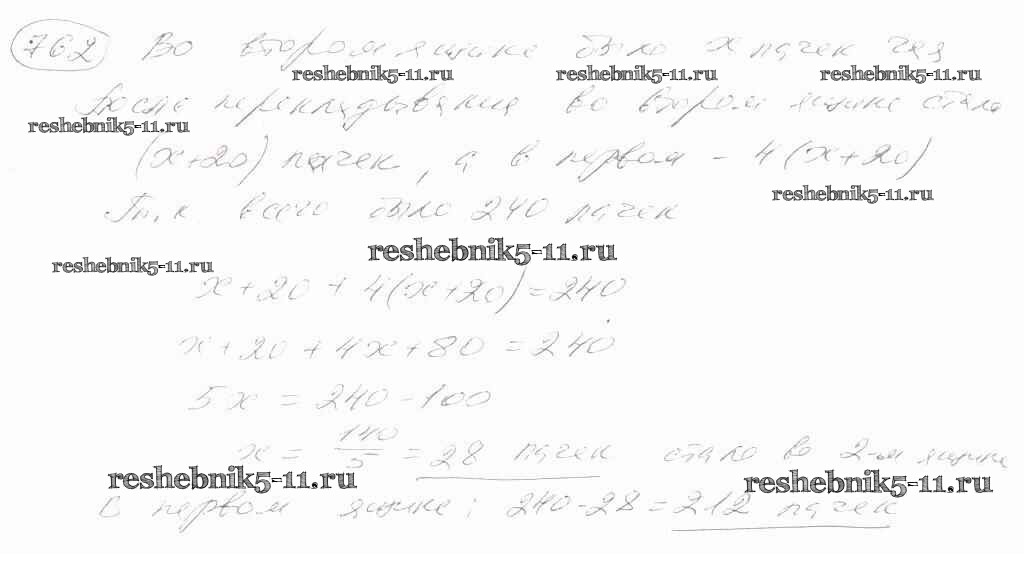 762 Во втором ящике было x пачек чая
reshebnik5-11.ru reshebnik5-11.ru reshebnik5-11.ru
После перекладывания во втором ящике стало
reshebnik5-11.ru
(x+20) пачек, а в первом - 4(x+20)
reshebnik5-11.ru
Т.к. всего было 240 пачек
reshebnik5-11.ru
reshebnik5-11.ru
x+20+4(x+20)=240
x+20+4x+80=240
5x=240-100
x=140/5=28 пачек стало во 2-м ящике
reshebnik5-11.ru reshebnik5-11.ru
В первом ящике: 240-28=212 пачек